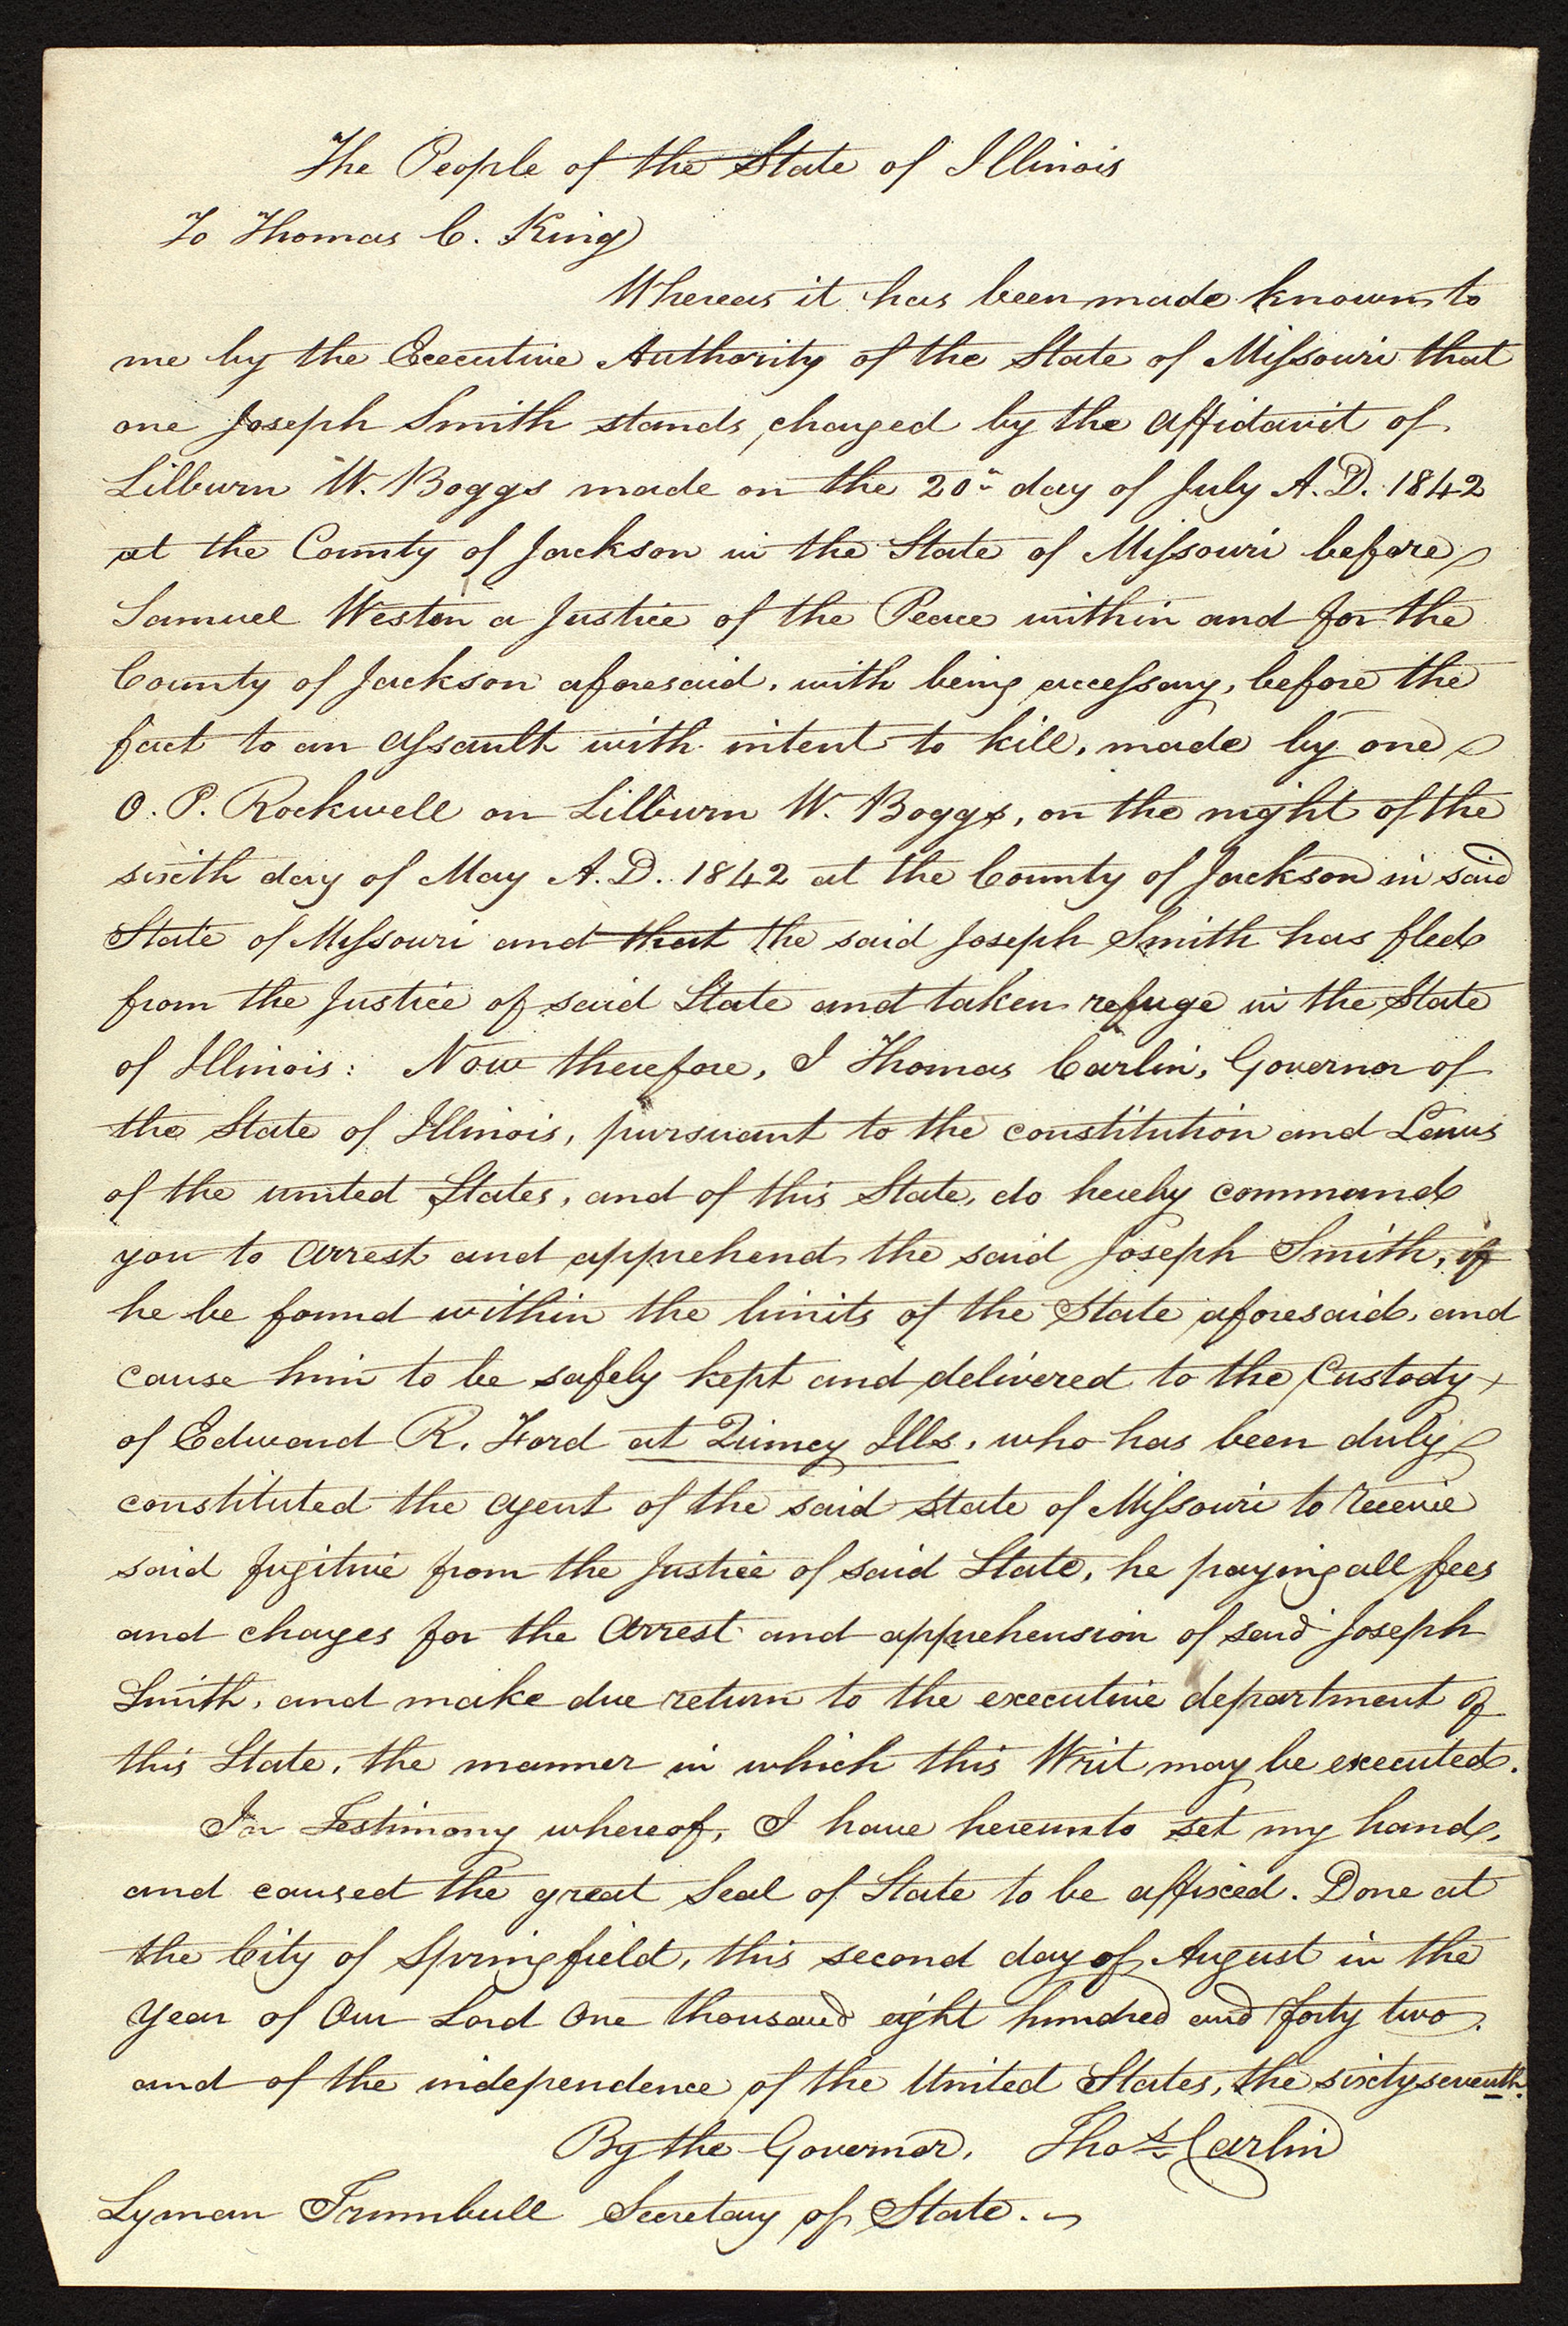 The People of the State of Illinois
To Thomas C. King
Whereas it has been made known to
me by the Executive Authority of the State of Missouri that
one Joseph Smith stands, charged by the affidavit of
Lilburn W. Boggs made on the 20th day of July A.D. 1842
at the County of Jackson in the State of Missouri before
Samuel Weston a Justice of the Peace within and for the
County of Jackson aforesaid, with being accessary, before the
fact to an assault with intent to kill, made by one
O. P. Rockwell on Lilburn W. Boggs, on the night of the
sixth day of May A.D. 1842 at the County of Jackson in said
State of Missouri and that the said Joseph Smith has fled
from the Justice of said State and taken refuge in the State
of Illinois: Now therefore, I Thomas Carlin, Governor of
the State of Illinois, pursuant to the constitution and Laws
of the united States, and of this State, do hereby command
you to arrest and apprehend the said Joseph Smith, if
he be found within the limits of the State aforesaid, and
cause him to be safely kept and delivered to the Custody
of Edward R. Ford at Quincy Ills, who has been duly
constituted the agent of the said state of Missouri to receive
said fugitive from the Justice of said State, he paying all fees
and charges for the arrest and apprehension of said Joseph
Smith, and make due return to the executive department of
this State, the manner in which this Writ may be executed.
In Testimony whereof, I have hereunto set my hand,
and caused the great Seal of State to be affixed. Done at
the City of Springfield, this second day of August in the
year of Our Lord One thousand eight hundred and forty two.
and of the independence of the United States, the sixty seventh.
By the Governor, Thos Carlin
Lyman Trumbull Secretary of State.